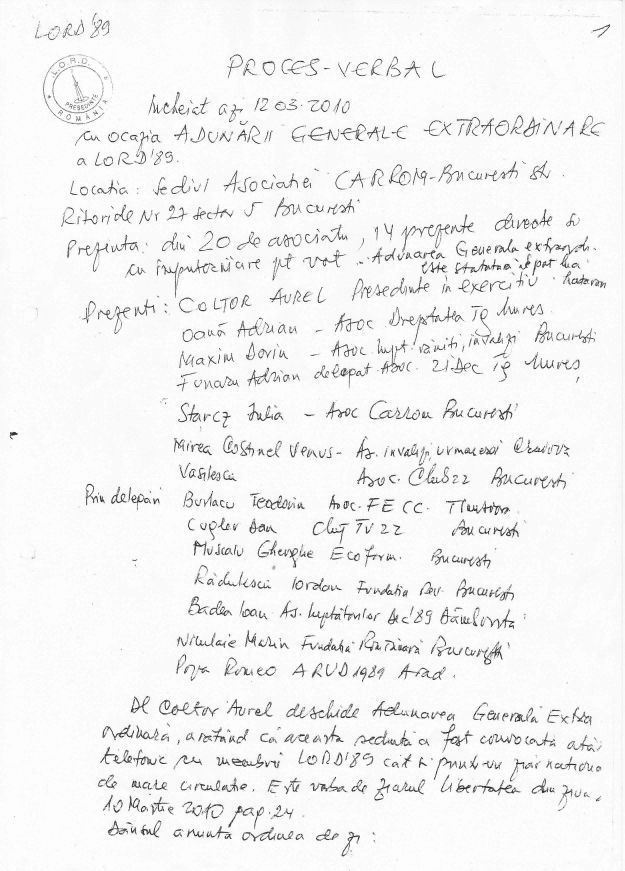 LORD'89
1
L.O.R.D.
PRESEDINTE
ROMÂNIA
PROCES-VERBAL
Incheiat azi 12 03.2010
cu ocazia ADUNĂRII GENERALE EXTRAORDINARE
a LORD'89.
Locatia: Sediul Asociatiei CARROM-Bucuresti str.
Ritoride Nr 27 sector 5 Bucuresti
Prezenta: din 20 de asociatii, 14 prezente directe si
cu imputernicire pt vot. Adunarea Generala extraord.
este statutară si pot lua
Prezenti: COLTOR AUREL Presedinte in exercitiu
Oană Adrian - Asoc Dreptatea Tg Mures
Maxim Dorin - Asoc. lupt. răniti, invalizi Bucuresti
Funaru Adrian delegat Asoc. 21 Dec Tg Mures
Starcz Iulia - Asoc Carrom Bucuresti
Mirea Costinel Venus - As. invalizi, urmasi Craiova
Vasilescu Asoc. Club 22 Bucuresti
Prin delegari Burlacu Teodorin Asoc. FECC.
Cugler Dan Cluj TV 22 Bucuresti
Muscalu Gheorghe Ecoform. Bucuresti
Rădulescu Iordan Fundatia Rev. Bucuresti
Badea Ioan As. luptătorilor Dec'89 Dâmbovita
Niculaie Marin Fundatia Română Bucuresti
Popa Romeo ARUD1989 Arad.
Dl Coltor Aurel deschide Adunarea Generală Extra
ordinară, arătând că aceasta sedintă a fost convocată atât
telefonic cu membrii LORD'89 cât si printr-un ziar nationa
de mare circulatie. Este vorba de ziarul Libertatea din ziua
10 Martie 2010 pag. 24.
Dânsul anunta ordinea de zi: